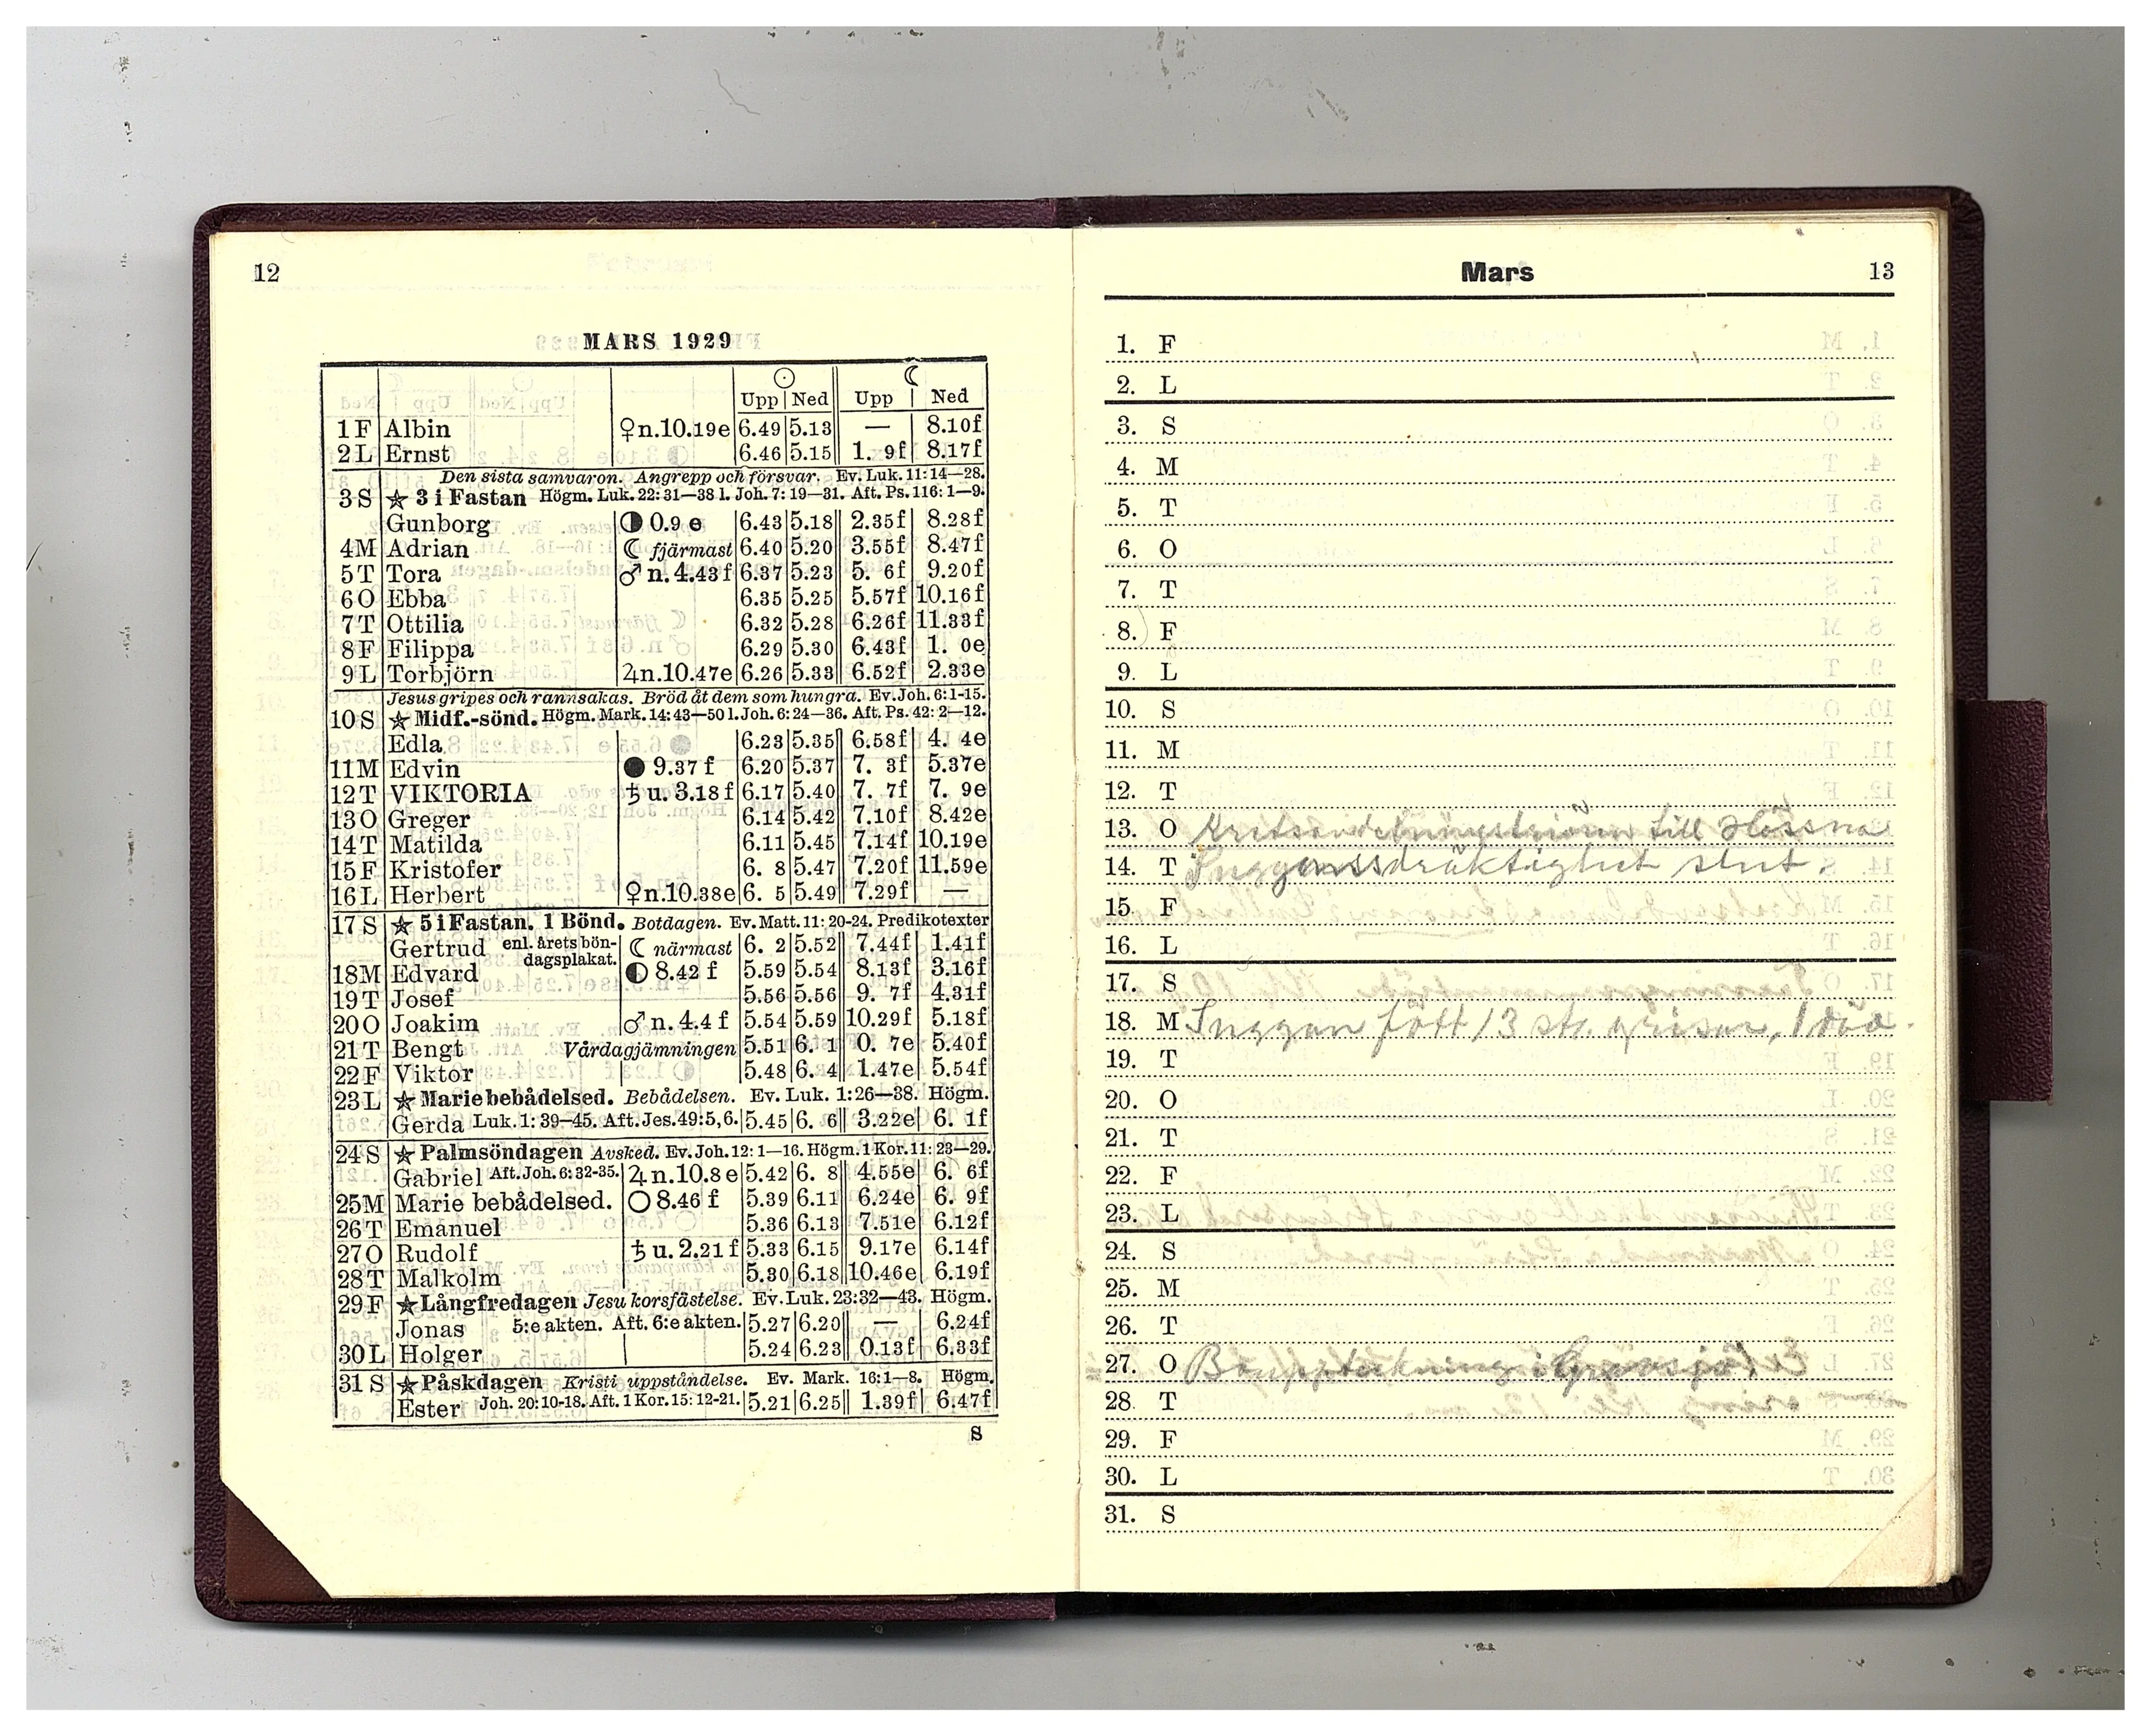 12
MARS 1929
☉ ☾
Upp Ned Upp Ned
1 F Albin ♀n.10.19e 6.49 5.13 — 8.10f
2 L Ernst 6.46 5.15 1. 9f 8.17f
Den sista samvaron. Angrepp och försvar. Ev. Luk. 11:14—28.
3 S ★ 3 i Fastan Högm. Luk. 22:31—38 l. Joh. 7:19—31. Aft. Ps. 116:1—9.
Gunborg ◑ 0.9 e 6.43 5.18 2.35f 8.28f
4 M Adrian ☾ fjärmast 6.40 5.20 3.55f 8.47f
5 T Tora ♂ n. 4.43f 6.37 5.23 5. 6f 9.20f
6 O Ebba 6.35 5.25 5.57f 10.16f
7 T Ottilia 6.32 5.28 6.26f 11.33f
8 F Filippa 6.29 5.30 6.43f 1. 0e
9 L Torbjörn ♃n.10.47e 6.26 5.33 6.52f 2.33e
Jesus gripes och rannsakas. Bröd åt dem som hungra. Ev. Joh. 6:1-15.
10 S ★ Midf.-sönd. Högm. Mark. 14:43—50 l. Joh. 6:24—36. Aft. Ps. 42:2—12.
Edla 6.23 5.35 6.58f 4. 4e
11 M Edvin ● 9.37 f 6.20 5.37 7. 3f 5.37e
12 T VIKTORIA ♄ u. 3.18 f 6.17 5.40 7. 7f 7. 9e
13 O Greger 6.14 5.42 7.10f 8.42e
14 T Matilda 6.11 5.45 7.14f 10.19e
15 F Kristofer 6. 8 5.47 7.20f 11.59e
16 L Herbert ♀n.10.38e 6. 5 5.49 7.29f —
17 S ★ 5 i Fastan. 1 Bönd. Botdagen. Ev. Matt. 11:20-24. Predikotexter
Gertrud enl. årets böndagsplakat. ☾ närmast 6. 2 5.52 7.44f 1.41f
18 M Edvard ◐ 8.42 f 5.59 5.54 8.13f 3.16f
19 T Josef 5.56 5.56 9. 7f 4.31f
20 O Joakim ♂ n. 4.4 f 5.54 5.59 10.29f 5.18f
21 T Bengt Vårdagjämningen 5.51 6. 1 0. 7e 5.40f
22 F Viktor 5.48 6. 4 1.47e 5.54f
23 L ★ Marie bebådelsed. Bebådelsen. Ev. Luk. 1:26—38. Högm.
Gerda Luk. 1:39—45. Aft. Jes. 49:5,6. 5.45 6. 6 3.22e 6. 1f
24 S ★ Palmsöndagen Avsked. Ev. Joh. 12:1—16. Högm. 1 Kor. 11:23—29.
Gabriel Aft. Joh. 6:32-35. ♃ n.10.8 e 5.42 6. 8 4.55e 6. 6f
25 M Marie bebådelsed. ○ 8.46 f 5.39 6.11 6.24e 6. 9f
26 T Emanuel 5.36 6.13 7.51e 6.12f
27 O Rudolf ♄ u. 2.21 f 5.33 6.15 9.17e 6.14f
28 T Malkolm 5.30 6.18 10.46e 6.19f
29 F ★ Långfredagen Jesu korsfästelse. Ev. Luk. 23:32—43. Högm.
Jonas 5:e akten. Aft. 6:e akten. 5.27 6.20 — 6.24f
30 L Holger 5.24 6.23 0.13f 6.33f
31 S ★ Påskdagen Kristi uppståndelse. Ev. Mark. 16:1—8. Högm.
Ester Joh. 20:10-18. Aft. 1 Kor. 15:12-21. 5.21 6.25 1.39f 6.47f
S
Mars 13
1. F
2. L
3. S
4. M
5. T
6. O
7. T
8. F
9. L
10. S
11. M
12. T
13. O till Hössna
14. T Suggans dräktighet slut.
15. F
16. L
17. S
18. M Suggan fött 13 st. grisar, 1 död.
19. T
20. O
21. T
22. F
23. L
24. S
25. M
26. T
27. O Bouppteckning i
28. T
29. F
30. L
31. S